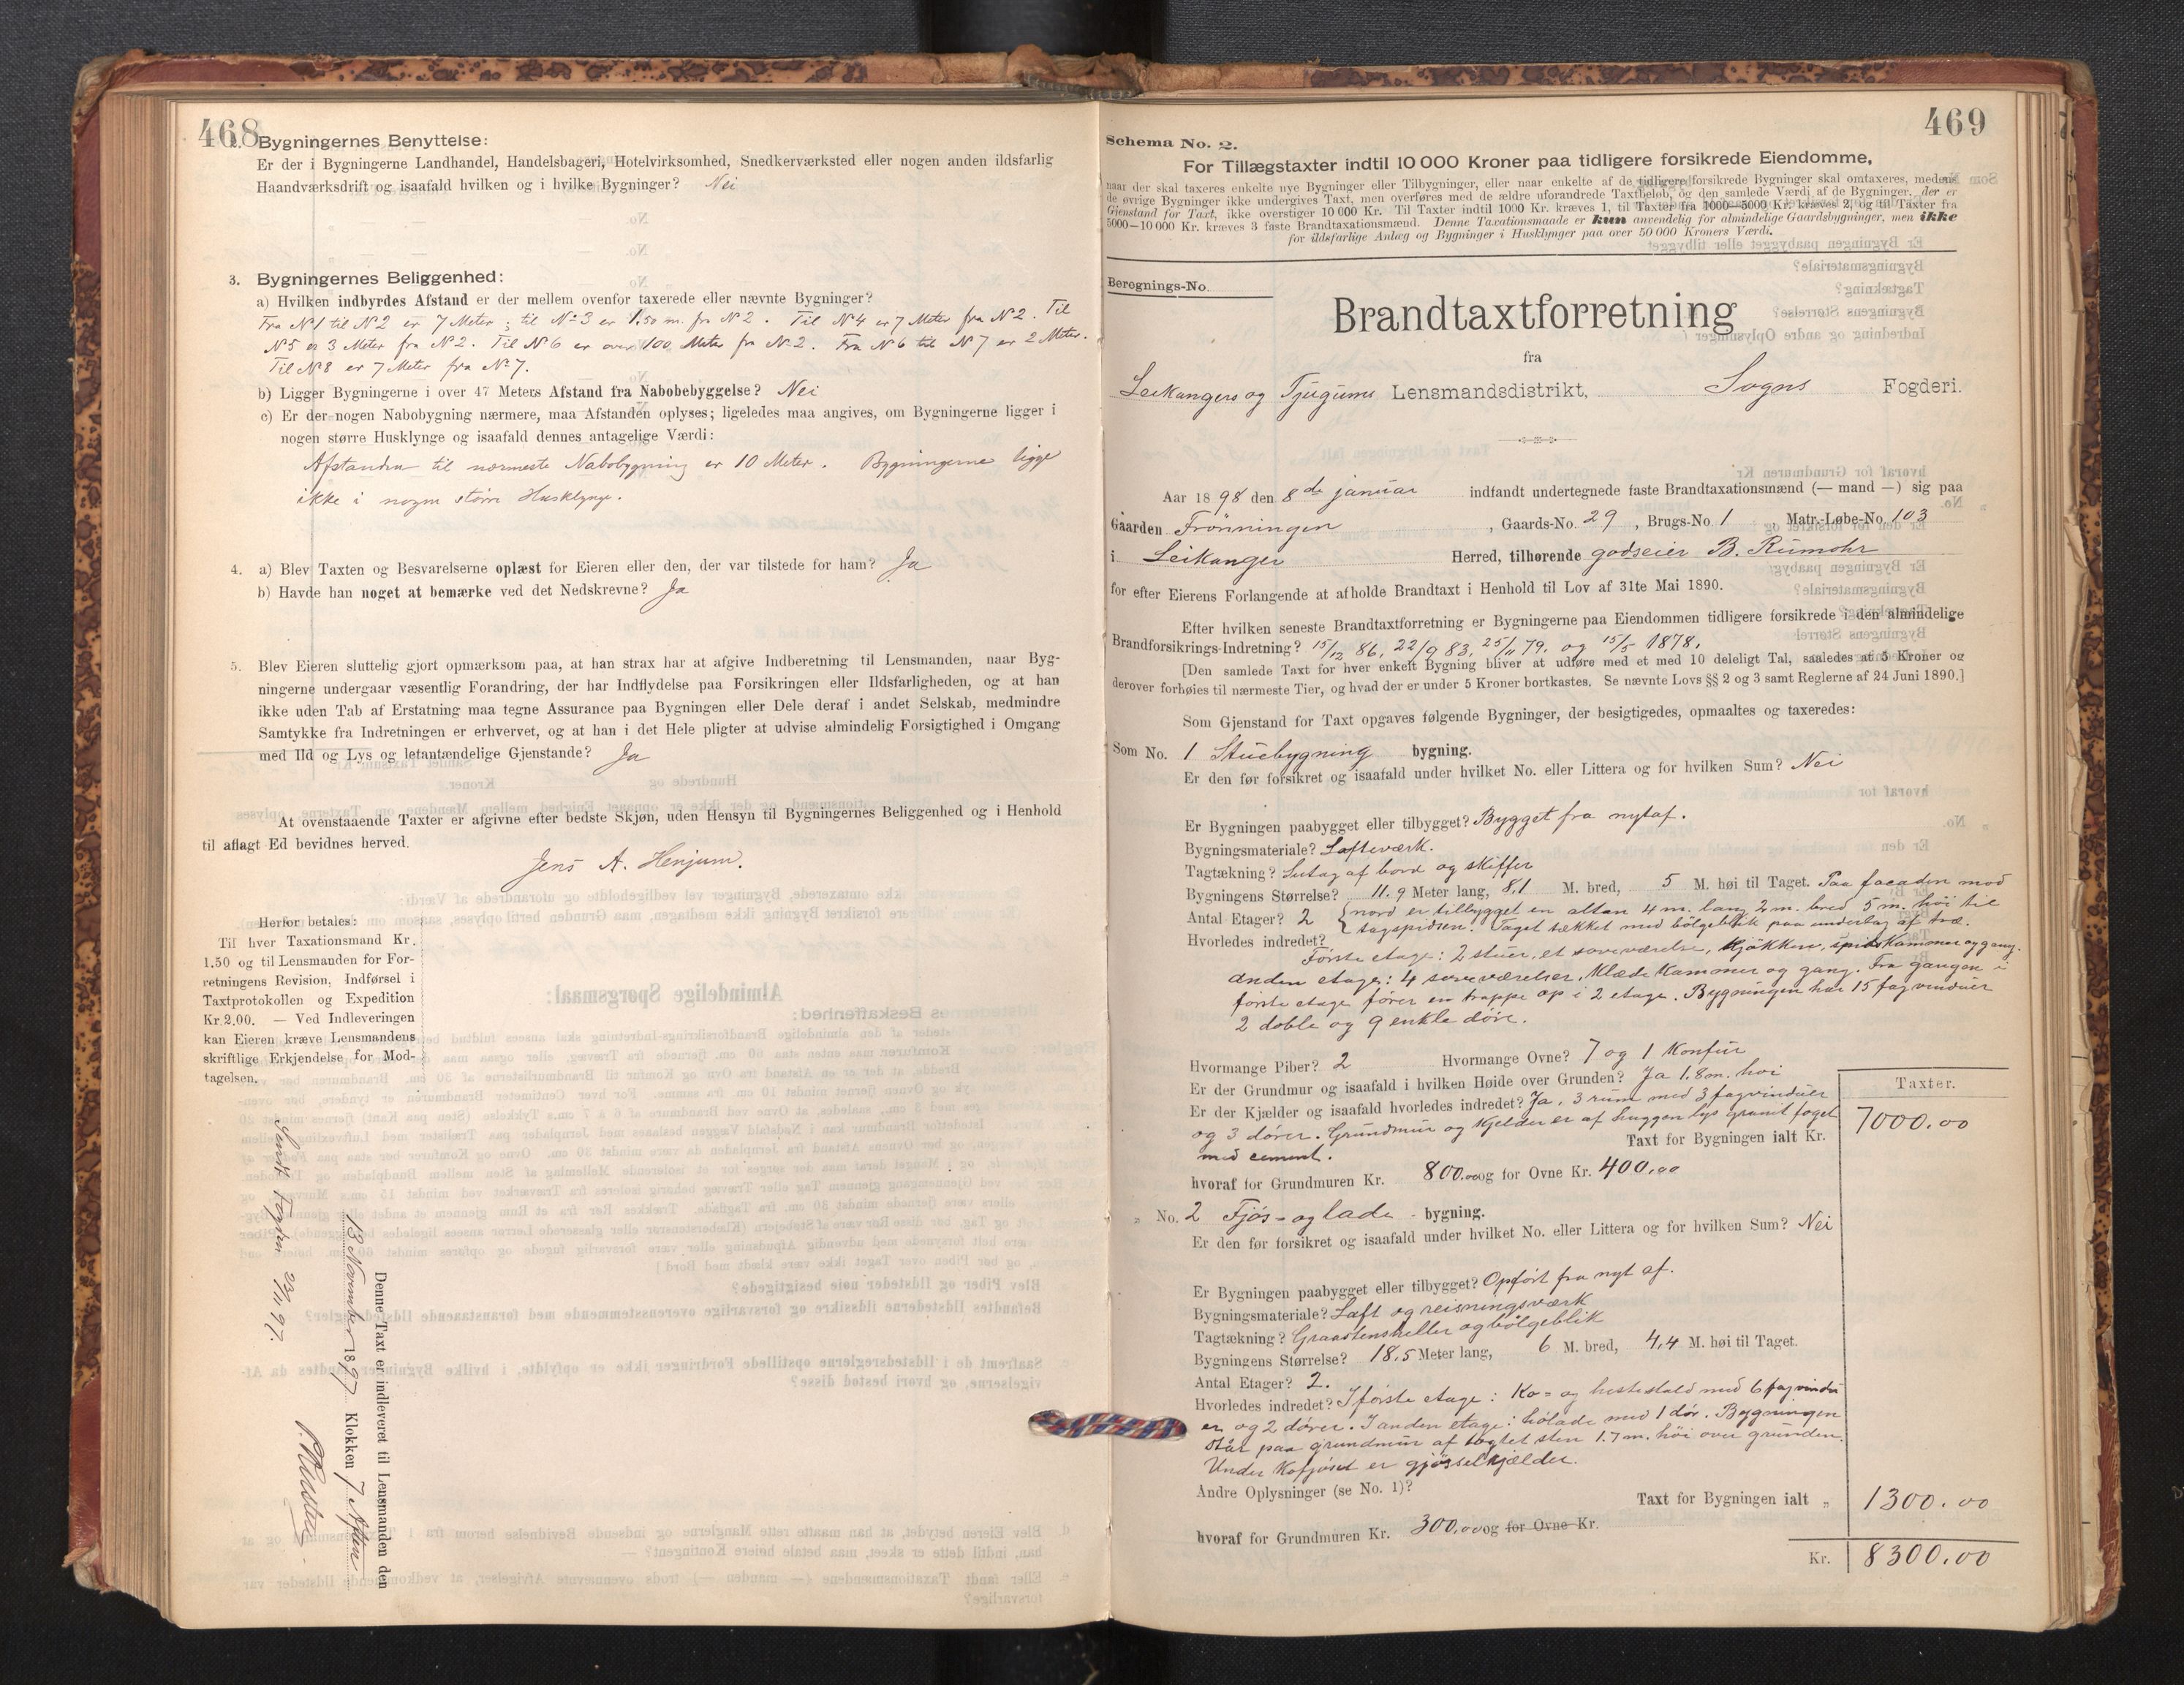 468
Bygningernes Benyttelse:
Er der i Bygningerne Landhandel, Handelsbageri, Hotelvirksomhed, Snedkerværksted eller nogen anden ildsfarlig
Haandværksdrift og isaafald hvilken og i hvilke Bygninger? Nei
3. Bygningernes Beliggenhed:
a) Hvilken indbyrdes Afstand er der mellem ovenfor taxerede eller nævnte Bygninger?
Fra No 1 til No 2 er 7 Meter; til No 3 er 1.50 m. fr No 2. Til No 4 er 7 Meter fra No 2. Til
No 5 er 3 Meter fra No 2. Til No 6 er over 100 Meter fr No 2. Fra No 6 til No 7 er 2 Meter.
Til No 8 er 7 Meter fra No 7.
b) Ligger Bygningerne i over 47 Meters Afstand fra Nabobebyggelse? Nei
c) Er der nogen Nabobygning nærmere, maa Afstanden oplyses; ligeledes maa angives, om Bygningerne ligger i
nogen større Husklynge og isaafald dennes antagelige Værdi:
Afstanden til nærmeste Nabobygning er 10 Meter. Bygningerne ligge
ikke i nogen større Husklynge.
4. a) Blev Taxten og Besvarelserne oplæst for Eieren eller den, der var tilstede for ham? Ja
b) Havde han noget at bemærke ved det Nedskrevne? Ja
5. Blev Eieren sluttelig gjort opmærksom paa, at han strax har at afgive Indberetning til Lensmanden, naar Byg-
ningerne undergaar væsentlig Forandring, der har Indflydelse paa Forsikringen eller Ildsfarligheden, og at han
ikke uden Tab af Erstatning maa tegne Assurance paa Bygningen eller Dele deraf i andet Selskab, medmindre
Samtykke fra Indretningen er erhvervet, og at han i det Hele pligter at udvise almindelig Forsigtighed i Omgang
med Ild og Lys og letantændelige Gjenstande? Ja
At ovenstaaende Taxter er afgivne efter bedste Skjøn, uden Hensyn til Bygningernes Beliggenhed og i Henhold
til aflagt Ed bevidnes herved.
Jens A. Henjum.
Herfor betales:
Til hver Taxationsmand Kr.
1.50 og til Lensmanden for For-
retningens Revision, Indførsel i
Taxtprotokollen og Expedition
Kr. 2.00. — Ved Indleveringen
kan Eieren kræve Lensmandens
skriftlige Erkjendelse for Mod-
tagelsen.
Denne Taxt er indleveret til Lensmanden den
13 November 1897 Klokken 7 Aften
Sendt Fogden 23/11 97.
469
Schema No. 2.
For Tillægstaxter indtil 10 000 Kroner paa tidligere forsikrede Eiendomme,
naar der skal taxeres enkelte nye Bygninger eller Tilbygninger, eller naar enkelte af de tidligere forsikrede Bygninger skal omtaxeres, medens
de øvrige Bygninger ikke undergives Taxt, men overføres med de ældre uforandrede Taxtbeløb, og den samlede Værdi af de Bygninger, der er
Gjenstand for Taxt, ikke overstiger 10 000 Kr. Til Taxter indtil 1000 Kr. kræves 1, til Taxter fra 1000—5000 Kr. kræves 2, og til Taxter fra
5000—10 000 Kr. kræves 3 faste Brandtaxationsmænd. Denne Taxationsmaade er kun anvendelig for almindelige Gaardsbygninger, men ikke
for ildsfarlige Anlæg og Bygninger i Husklynger paa over 50 000 Kroners Værdi.
Beregnings-No.
Brandtaxtforretning
fra
Leikangers og Tjugums Lensmandsdistrikt, Sogns Fogderi.
Aar 1898 den 8de januar indfandt undertegnede faste Brandtaxationsmænd (— mand —) sig paa
Gaarden Frönningen, Gaards-No. 29, Brugs-No. 1, Matr.-Løbe-No. 103
i Leikanger Herred, tilhørende godseier B. Rumohr
for efter Eierens Forlangende at afholde Brandtaxt i Henhold til Lov af 31te Mai 1890.
Efter hvilken seneste Brandtaxtforretning er Bygningerne paa Eiendommen tidligere forsikrede i den almindelige
Brandforsikrings-Indretning? 15/12 86, 22/9 83, 25/11 79. og 15/5 1878.
[Den samlede Taxt for hver enkelt Bygning bliver at udføre med et med 10 deleligt Tal, saaledes at 5 Kroner og
derover forhøies til nærmeste Tier, og hvad der er under 5 Kroner bortkastes. Se nævnte Lovs §§ 2 og 3 samt Reglerne af 24 Juni 1890.]
Som Gjenstand for Taxt opgaves følgende Bygninger, der besigtigedes, opmaaltes og taxeredes:
Som No. 1 Stuebygning bygning.
Er den før forsikret og isaafald under hvilket No. eller Littera og for hvilken Sum? Nei
Er Bygningen paabygget eller tilbygget? Bygget fra nytaf.
Bygningsmateriale? Lafteværk.
Tagtækning? Sutag af bord og skiffer
Bygningens Størrelse? 11.9 Meter lang, 8,1 M. bred, 5 M. høi til Taget. Paa facaden mod
Antal Etager? 2 nord er tilbygget en altan 4 m. lang 2 m. bred 5 m. höi til
Hvorledes indredet? tagspidsen. Taget tækket med bölgeblik paa underlag af træ.
Förste etage: 2 stuer, et soveværelse, kjökken, spiskammer og gang.
Anden etage: 4 soveværelser, klædekammer og gang. Fra gangen i
förste etage förer en trappe op i 2 etage. Bygningen har 15 fag vinduer
2 doble og 9 enkle döre.
Hvormange Piber? 2 Hvormange Ovne? 7 og 1 Konfur
Er der Grundmur og isaafald i hvilken Høide over Grunden? Ja 1.8 m. höi
Er der Kjælder og isaafald hvorledes indredet? Ja, 3 rum med 3 fag vinduer
og 3 dörer. Grundmur og kjelder er af huggen lys granit foget
med cement.
Taxter.
Taxt for Bygningen ialt Kr. 7000.00
hvoraf for Grundmuren Kr. 800.00 og for Ovne Kr. 400.00
„ No. 2 Fjös- og lade bygning.
Er den før forsikret og isaafald under hvilket No. eller Littera og for hvilken Sum? Nei
Er Bygningen paabygget eller tilbygget? Opfört fra nyt af.
Bygningsmateriale? Laft og reisningsværk
Tagtækning? Graastensheller og bölgeblik
Bygningens Størrelse? 18,5 Meter lang, 6 M. bred, 4,4 M. høi til Taget.
Antal Etager? 2.
Hvorledes indredet? I förste etage: Ko- og hestestald med 6 fag vindu
er og 2 dörer. I anden etage: hölade med 1 dör. Bygningen
står paa grundmur af sten 1.7 m. höi over grunden.
Under Kofjöset er gjödselkjælder.
Andre Oplysninger (se No. 1)?
Taxt for Bygningen ialt „ 1300.00
hvoraf for Grundmuren Kr. 300.00 og for Ovne Kr.
Kr. 8300.00